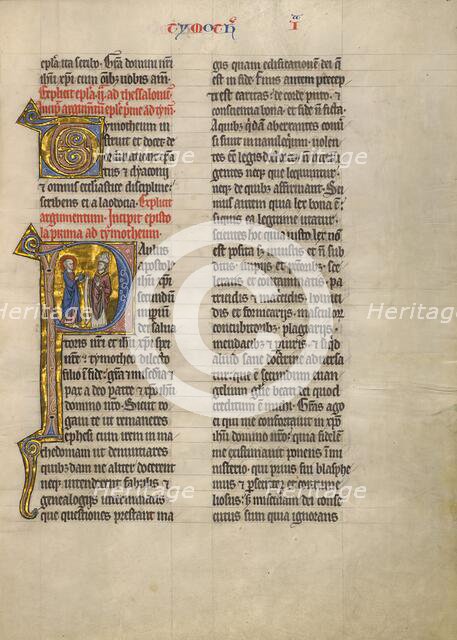 TYMOTH' I
epl'a ita scribo. Gr'a domini nr'i
ih'u xp'i cum om'ibus vobis am'.
Explicit epl'a .ii. ad thessalonic'.
Incipit argumentum epl'e prime ad tym'.
Tymotheum in
struit et docet de
ordinatione ep'
et diaconij
et omnis eccl'astice discipline
scribens ei a laodicia. Explicit
argumentum. Incipit episto
la prima ad tymotheum.
Paulus
apostol'
ih'u xp'i
secundum
imperium
dei salua
toris nr'i et ih'u xp'i spei
nr'e tymotheo dilecto
filio i' fide. gr'a mis'cdia et
pax a deo patre et xp'o ih'u
domino nr'o. Sicut ro
gaui te ut remaneres
ephesi cum irem in ma
chedoniam ut denuntiares
quibusdam ne aliter docerent
neque intenderent fabulis et
genealogijs interminatis
que questiones prestant ma
gis quam edificationem dei que
est in fide. Finis autem precep
ti est caritas de corde puro et
conscientia bona et fide non ficta.
A quibus quidam aberrantes conu'
si sunt in uaniloquium uolen
tes esse legis doctores non intelli
gentes neque que loquuntur
neque de quibus affirmant. Sci
mus autem quia lex bona est
siquis ea legitime utatur
sciens hoc quia iusto lex non
est posita sed iniustis et non sub
ditis impijs et
sceleratis contaminatis pa
tricidis et matricidis homici
dis et fornicarijs masculor'
concubitoribus plagiarijs
mendacibus et periuris et siquid
aliud sane doctrine aduersa
tur que est secundum euan
gelium glorie beati dei quod
creditum est michi. Gratias ago
ei qui me confortauit in xp'o
ih'u domino nr'o quia fidelem
me existimauit ponens in mi
nisterio qui prius fui blasphe
mus et persecutor et contume
liosus sed misericordiam dei conse
cutus sum quia ignorans
Heritage
Heritage
Heritage
Heritage
Heritage